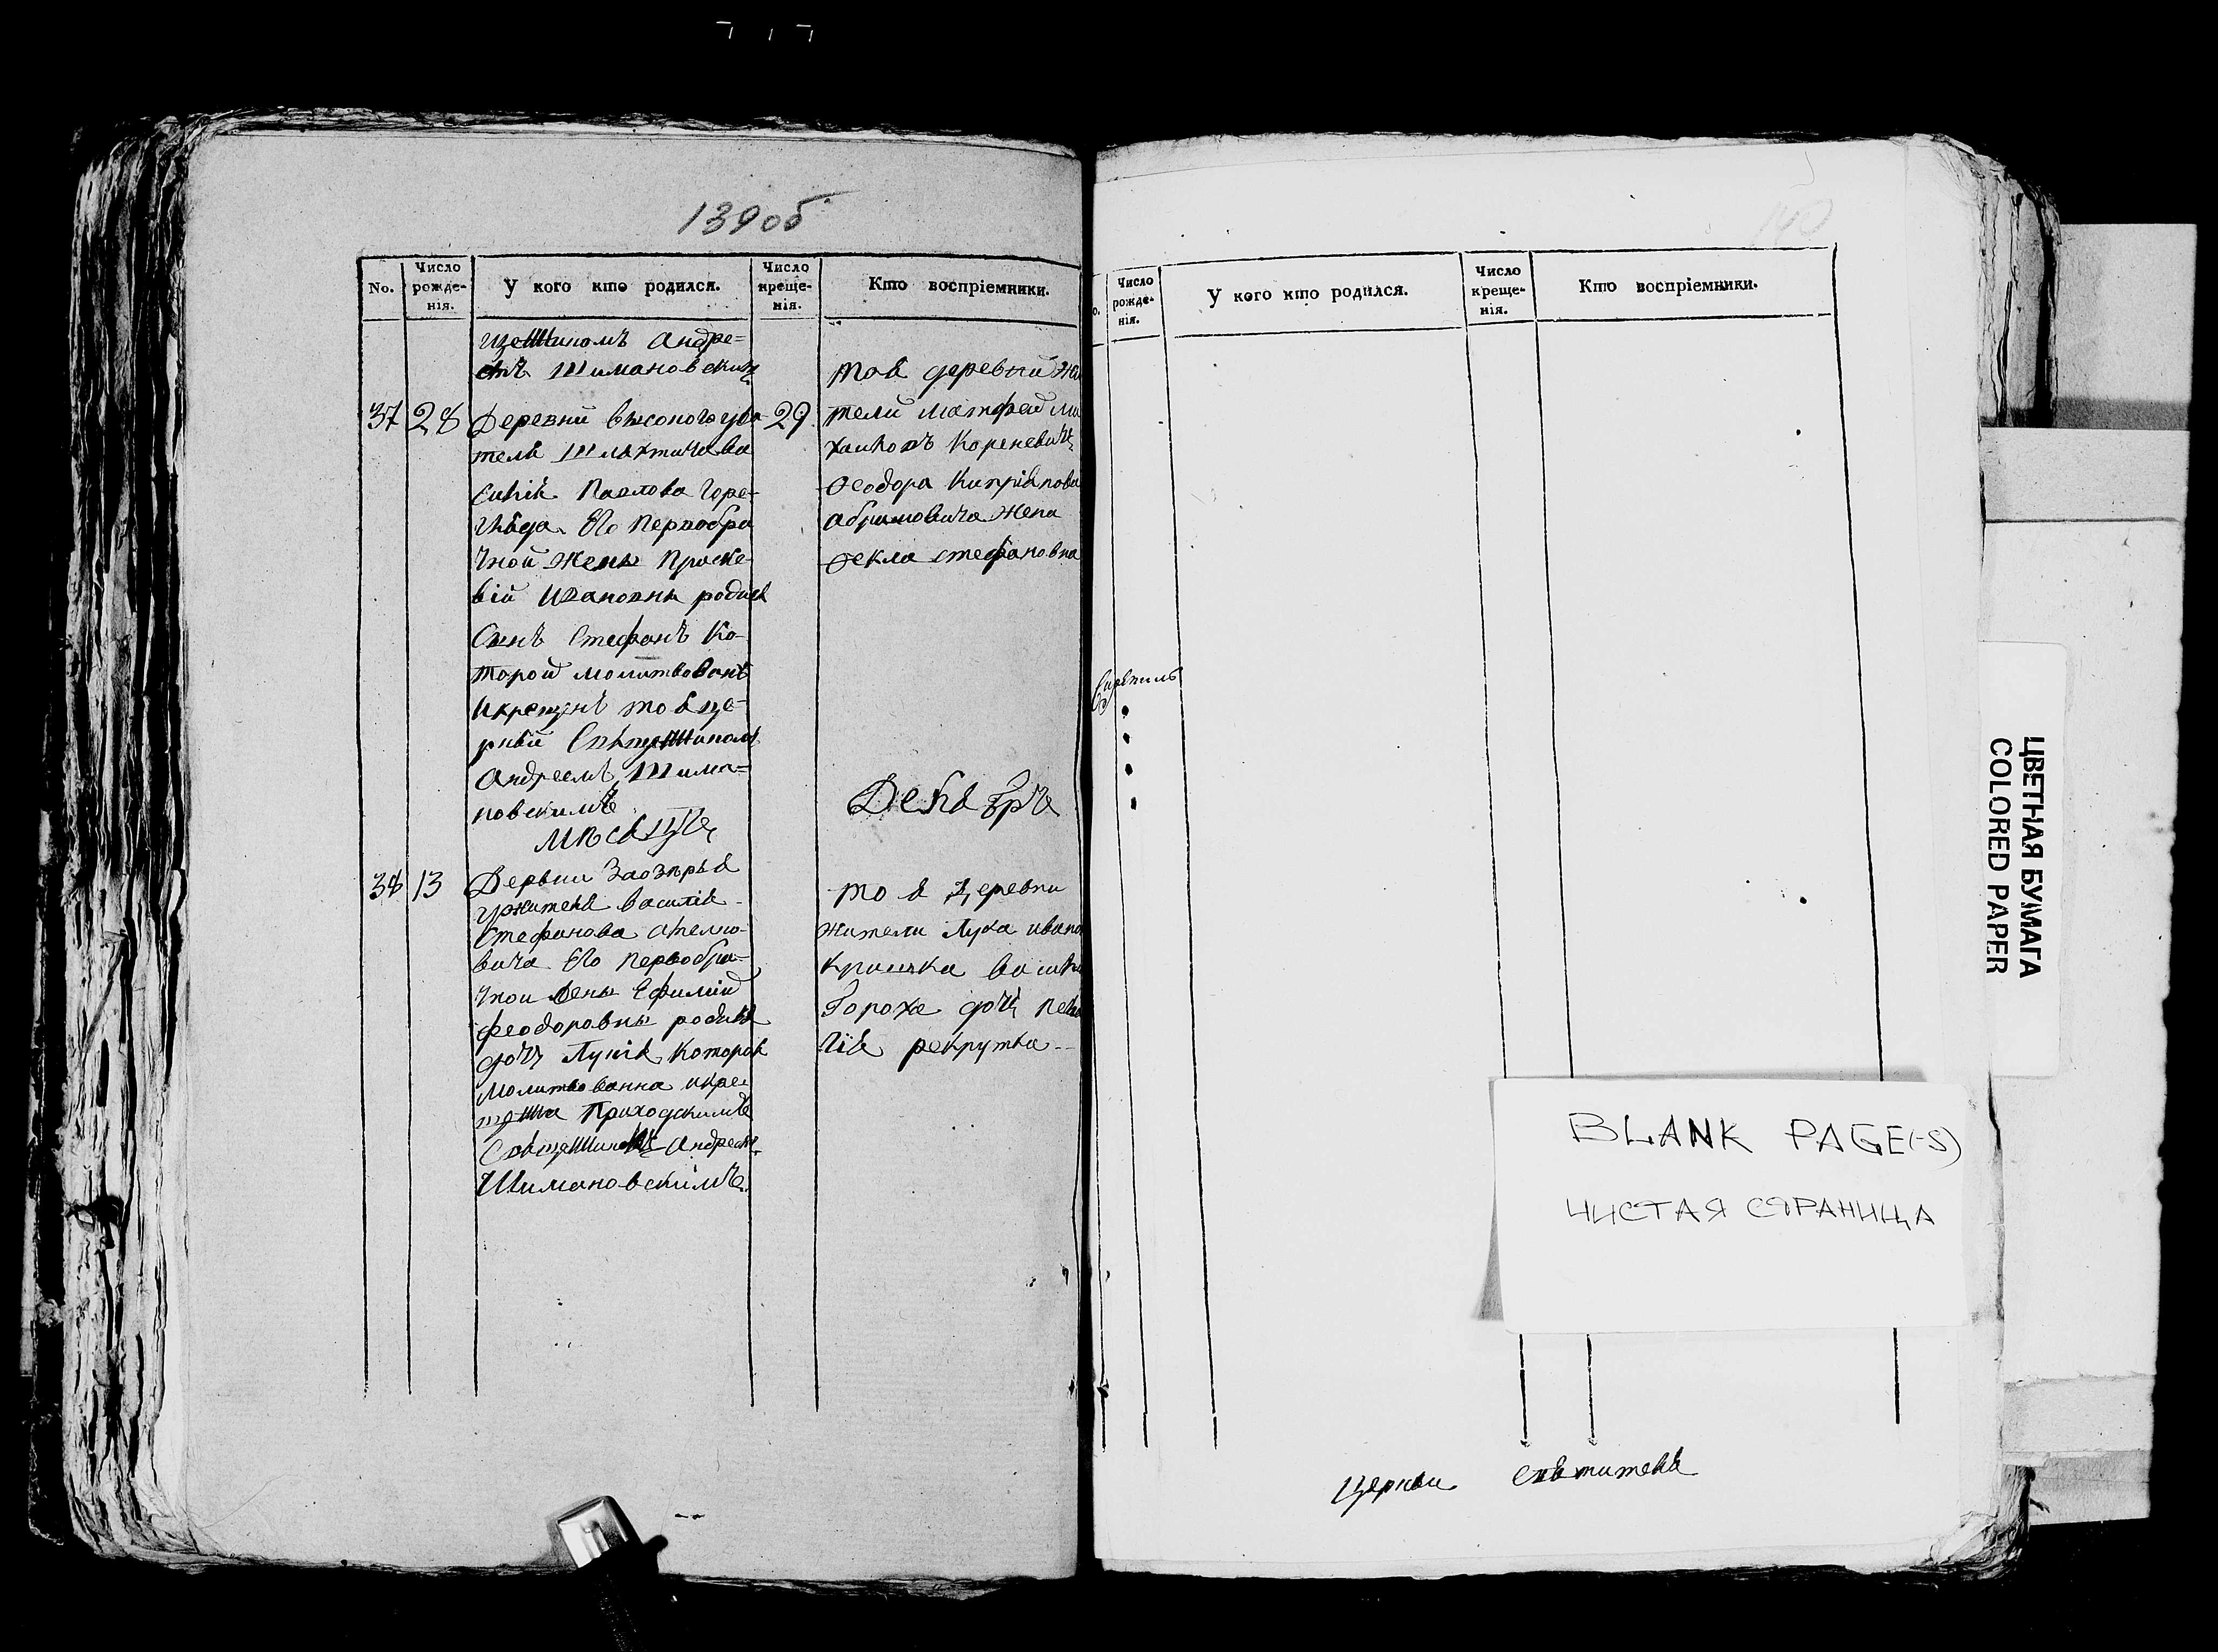 139об
No.
Число рожде-нія.
У кого кто родился.
Число креще-нія.
Кто воспріемники.
щенникомъ Андре-
емъ Шимановскимъ
37 28 Деревни высокого ужи-
теля Шляхтича Ва
силія Павлова Горе-
Его первобра
чной жены Праске-
віи Ивановны родися
Сынъ Стефанъ Ко-
торои молитвованъ
и крещенъ тоя це-
ркви Священникомъ
Андреемъ Шима-
новскимъ
29
тоя деревни жи
тели Матфей Ми
Кореневичъ
Феодора Кипріянова
Абрамовича жена
Фекла Стефановна
Мѣсяцъ Декабрь
38 13 Дервни Заозерья
ужителя Василія
Стефанова
вича Его первобра-
чнои жены Ефиміи
Феодоровны родися
дочь Лукія которая
молитвованна и кре-
щенна Приходскимъ
Священникомъ Андреемъ
Шимановскимъ.
тоя Деревни
жители Лука Ивано
Гороха дочь Пела
гія рекрутка
140
Число рожде-нія.
У кого кто родился.
Число креще-нія.
Кто воспріемники.
BLANK PAGE(-S)
ЧИСТАЯ СТРАНИЦА
Церкви Святителя
ЦВЕТНАЯ БУМАГА
COLORED PAPER